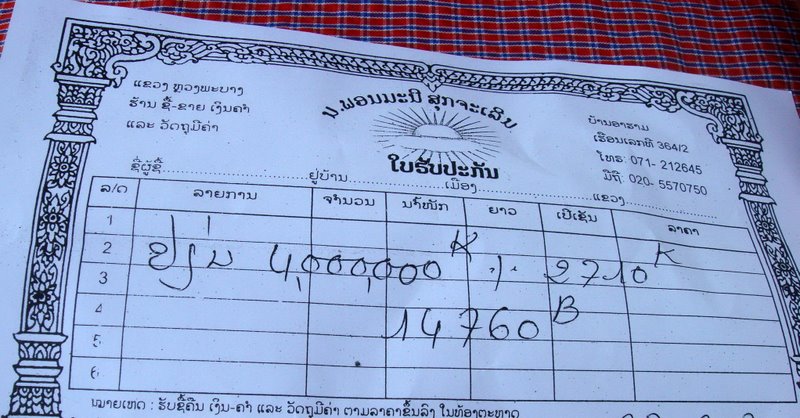 ແຂວງ ຫຼວງພະບາງ
ຮ້ານ ຊື້-ຂາຍ ເງິນຄຳ
ແລະ ວັດຖຸມີຄ່າ
ນ.ພອນມະນີ ສຸກຈະເລີນ
ໃບຮັບປະກັນ
ບ້ານອາຮາມ
ເຮືອນເລກທີ 364/2
ໂທຣ: 071- 212645
ມືຖື: 020- 5570750
ຊື່ຜູ້ຊື້ ຢູ່ບ້ານ ເມືອງ ແຂວງ
ລ/ດ ລາຍການ ຈຳນວນ ນ້ຳໜັກ ຍາວ ເປີເຊັນ ລາຄາ
1
2 4,000,000 K 2710 K
3
4 14760 B
5
6
ໝາຍເຫດ : ຮັບຊື້ຄືນ ເງິນ-ຄຳ ແລະ ວັດຖຸມີຄ່າ ຕາມລາຄາຂຶ້ນລົງ ໃນທ້ອງຕະຫຼາດ